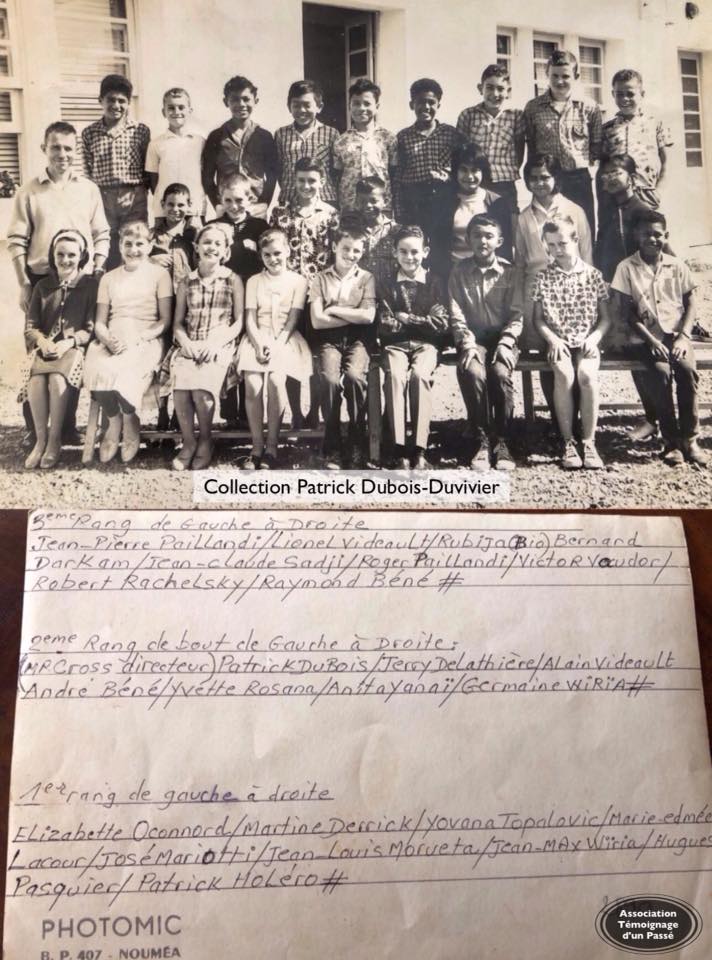 Collection Patrick Dubois-Duvivier
3eme Rang de Gauche à Droite
Jean-Pierre Paillandi/Lionel Videault/Rubija(Bio) Bernard
Darkam/Jean-Claude Sadji/Roger Paillandi/Victor Vaudor/
Robert Rachelsky/Raymond Béné #
2eme Rang debout de Gauche à Droite:
(MR Cross directeur) Patrick DuBois/Terry Delathière/Alain Videault
André Béné/Yvette Rosana/Anita Yanaï/Germaine WiRiA#
1er rang de gauche à droite
Elizabette Oconnord/Martine Derrick/Yovana Topalovic/Marie-edmée
Lacour/José Mariotti/Jean-Louis Morueta/Jean-MAx Wiria/Hugues
Pasquier/Patrick Holéro#
PHOTOMIC
B. P. 407 - NOUMÉA
Association
Témoignage
d'un Passé